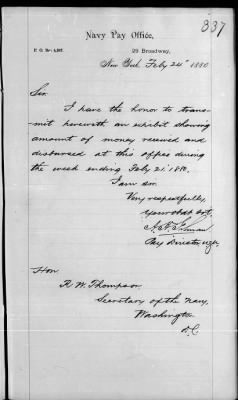 337
Navy Pay Office,
29 Broadway,
New York Feby 24" 1880
Sir
I have the honor to trans-
mit herewith an exhibit showing
amount of money received and
disbursed at this office during
the week ending Feby 21. 1880.
I am sir
Very respectfully,
Your obdt svt,
Pay Director USN.
Hon
R. W. Thompson
Secretary of the Navy,
Washington
D.C.